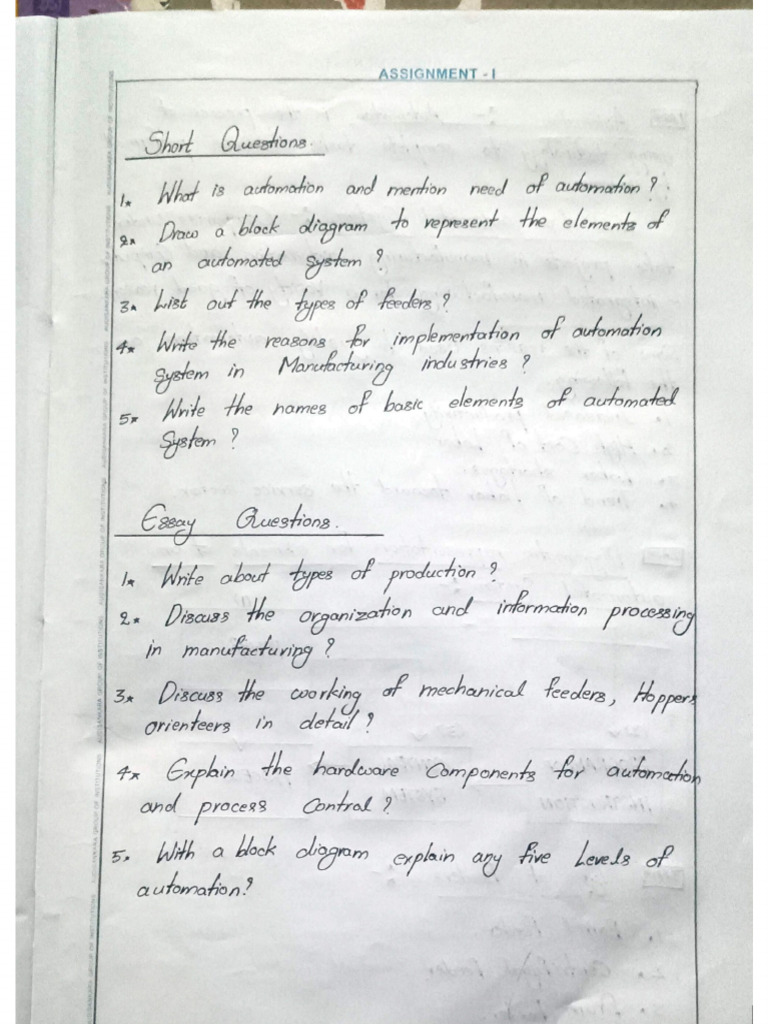 ASSIGNMENT - I
Short Questions.
1. What is automation and mention need of automation?
2. Draw a block diagram to represent the elements of
an automated System?
3. List out the types of feeders?
4. Write the reasons for implementation of automation
System in Manufacturing industries?
5. Write the names of basic elements of automated
System?
Essay Questions.
1. Write about types of production?
2. Discuss the organization and information processing
in manufacturing?
3. Discuss the working of mechanical feeders, Hoppers
orienteers in detail?
4. Explain the hardware Components for automation
and process Control?
5. With a block diagram explain any five Levels of
automation?